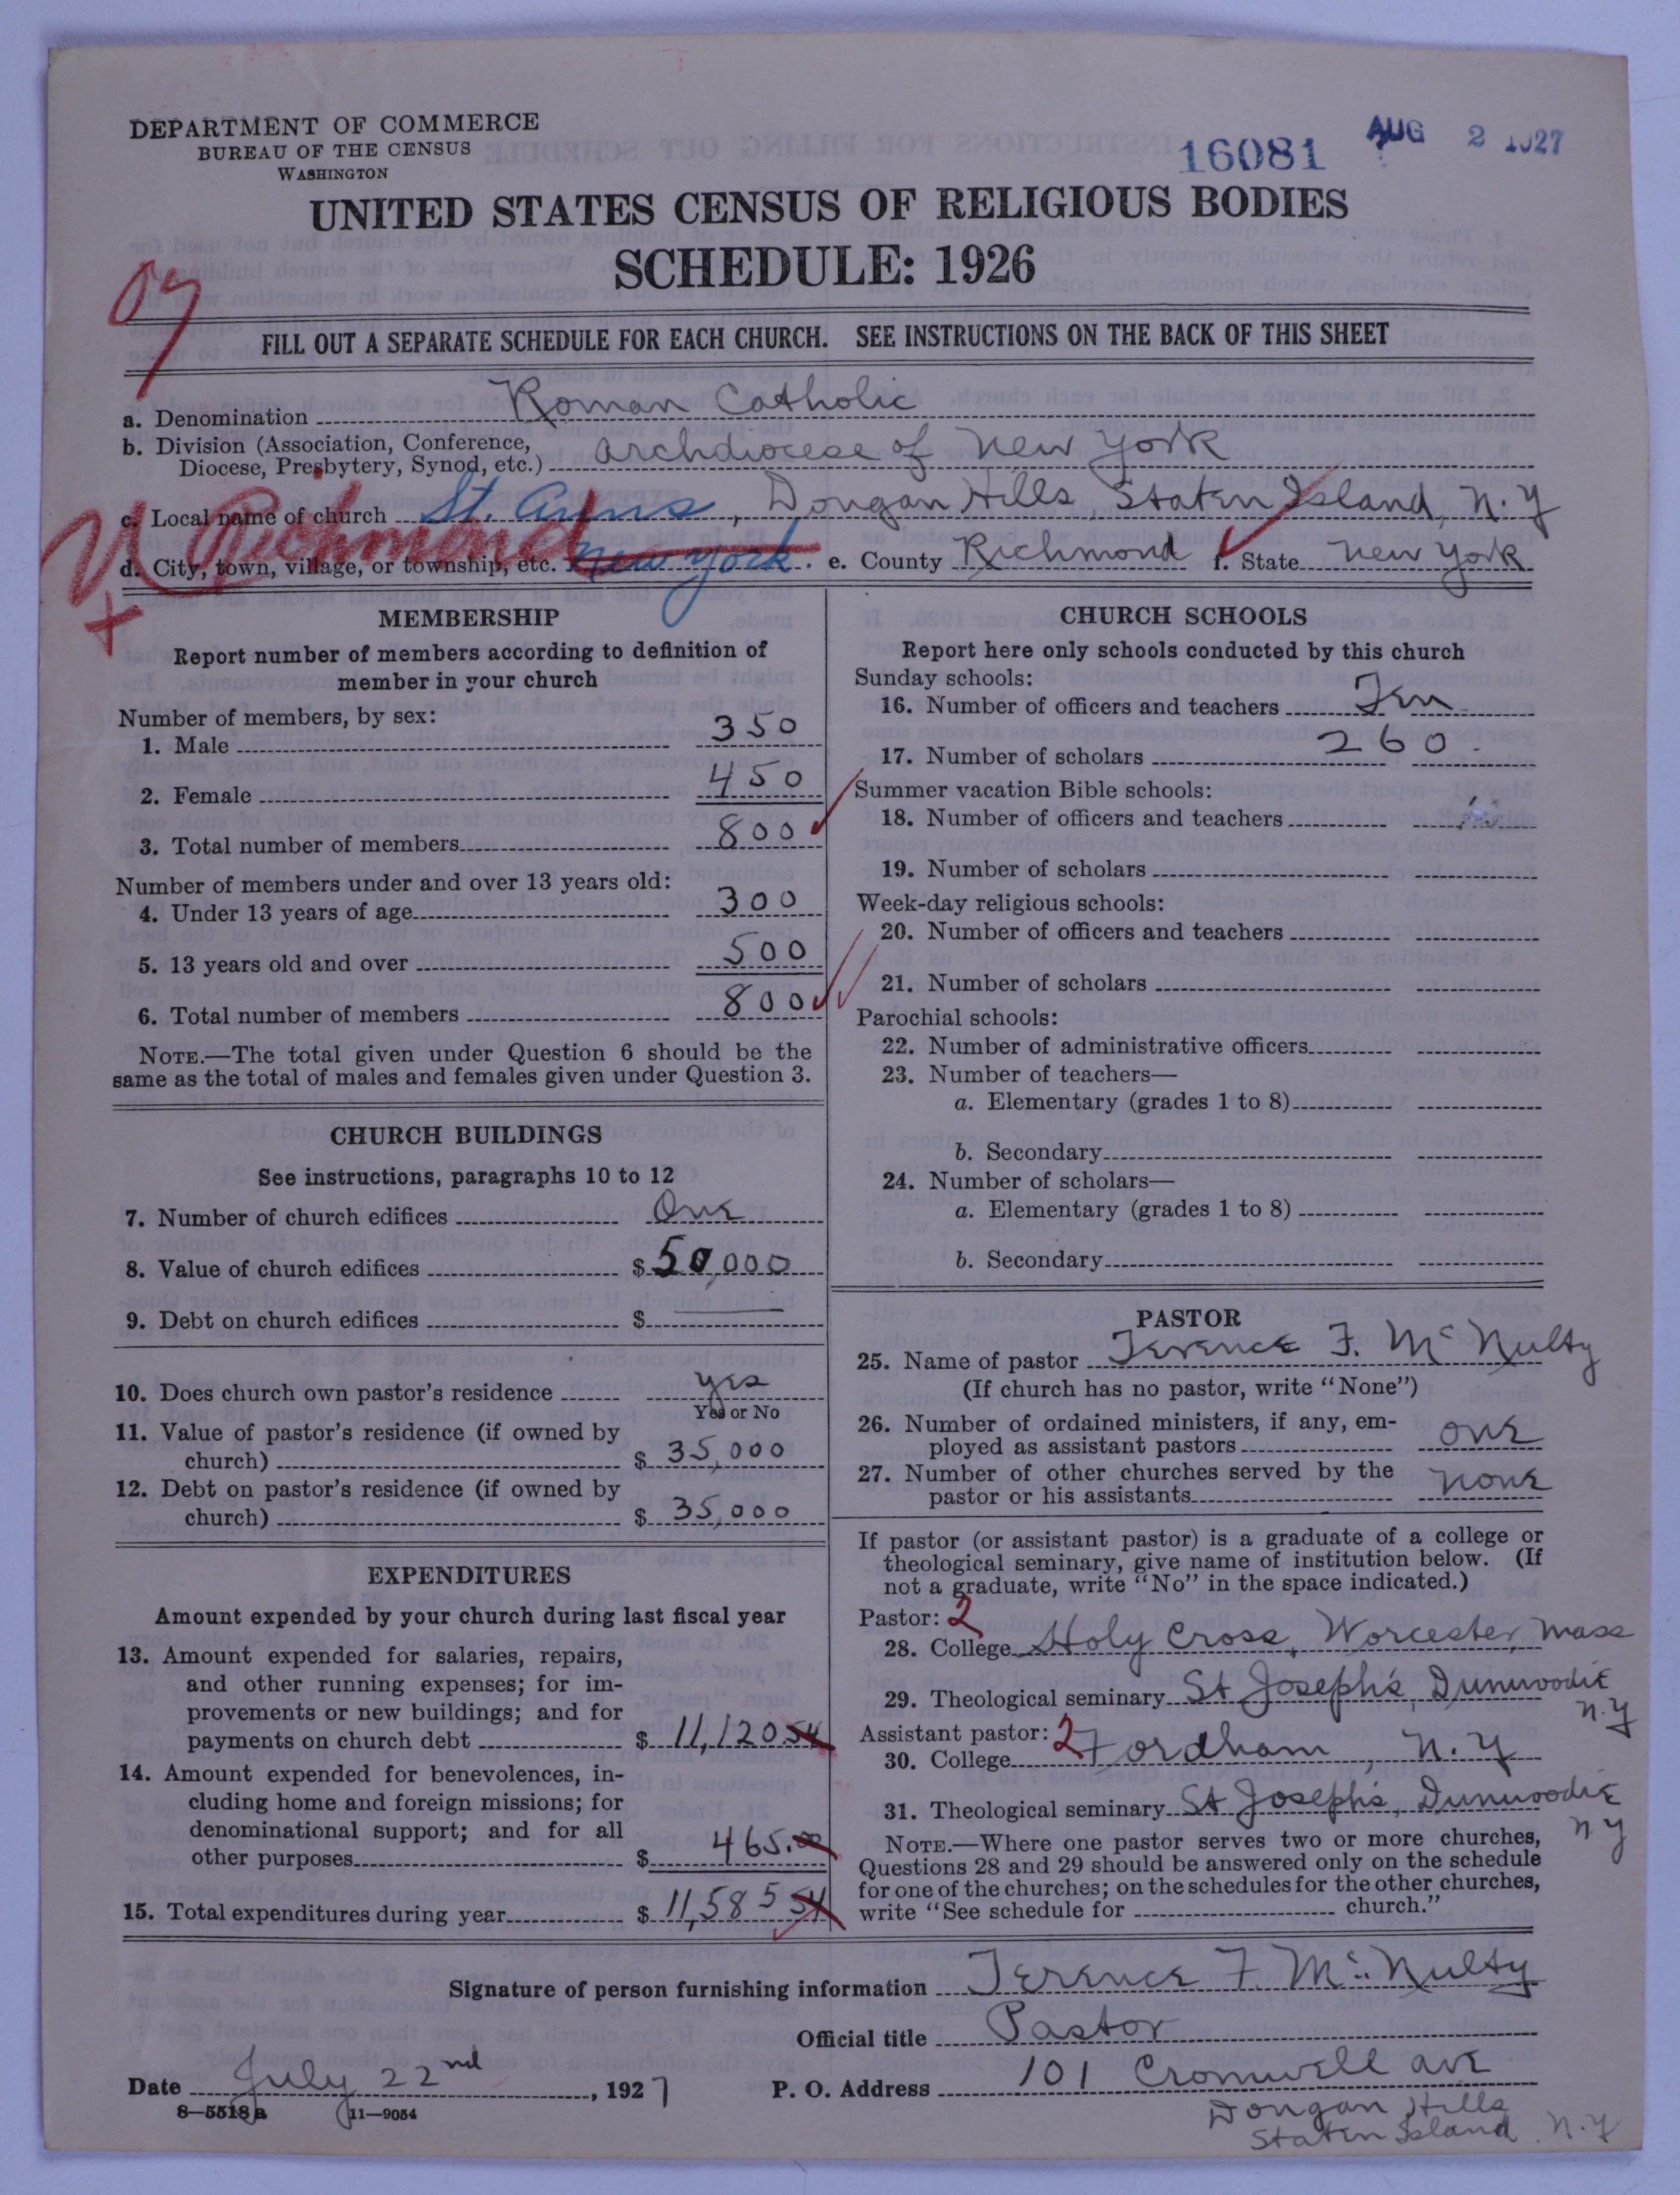 DEPARTMENT OF COMMERCE
BUREAU OF THE CENSUS
WASHINGTON
16081
AUG 2 1927
UNITED STATES CENSUS OF RELIGIOUS BODIES
SCHEDULE: 1926
FILL OUT A SEPARATE SCHEDULE FOR EACH CHURCH. SEE INSTRUCTIONS ON THE BACK OF THIS SHEET
a. Denomination Roman Catholic
b. Division (Association, Conference,
Diocese, Presbytery, Synod, etc.) Archdiocese of New York
c. Local name of church St. Anns, Dongan Hills, Staten Island, N.Y
Richmond
d. City, town, village, or township, etc. New York. e. County Richmond f. State New York
MEMBERSHIP
Report number of members according to definition of
member in your church
Number of members, by sex:
1. Male 350
2. Female 450
3. Total number of members 800
Number of members under and over 13 years old:
4. Under 13 years of age 300
5. 13 years old and over 500
6. Total number of members 800
NOTE.—The total given under Question 6 should be the
same as the total of males and females given under Question 3.
CHURCH BUILDINGS
See instructions, paragraphs 10 to 12
7. Number of church edifices One
8. Value of church edifices $ 50,000
9. Debt on church edifices $ —
10. Does church own pastor's residence yes
Yes or No
11. Value of pastor's residence (if owned by
church) $ 35,000
12. Debt on pastor's residence (if owned by
church) $ 35,000
EXPENDITURES
Amount expended by your church during last fiscal year
13. Amount expended for salaries, repairs,
and other running expenses; for im-
provements or new buildings; and for
payments on church debt $ 11,120 54
14. Amount expended for benevolences, in-
cluding home and foreign missions; for
denominational support; and for all
other purposes $ 465.00
15. Total expenditures during year $ 11,585 54
CHURCH SCHOOLS
Report here only schools conducted by this church
Sunday schools:
16. Number of officers and teachers Ten
17. Number of scholars 260
Summer vacation Bible schools:
18. Number of officers and teachers
19. Number of scholars
Week-day religious schools:
20. Number of officers and teachers
21. Number of scholars
Parochial schools:
22. Number of administrative officers
23. Number of teachers—
a. Elementary (grades 1 to 8)
b. Secondary
24. Number of scholars—
a. Elementary (grades 1 to 8)
b. Secondary
PASTOR
25. Name of pastor Terence F. McNulty
(If church has no pastor, write "None")
26. Number of ordained ministers, if any, em-
ployed as assistant pastors one
27. Number of other churches served by the
pastor or his assistants none
If pastor (or assistant pastor) is a graduate of a college or
theological seminary, give name of institution below. (If
not a graduate, write "No" in the space indicated.)
Pastor: 2
28. College Holy Cross, Worcester, Mass
29. Theological seminary St Joseph's, Dunwoodie
N.Y
Assistant pastor: 2
30. College Fordham, N.Y
31. Theological seminary St Joseph's, Dunwoodie
N Y
NOTE.—Where one pastor serves two or more churches,
Questions 28 and 29 should be answered only on the schedule
for one of the churches; on the schedules for the other churches,
write "See schedule for church."
Signature of person furnishing information Terence F. McNulty
Official title Pastor
Date July 22nd, 1927 P. O. Address 101 Cromwell ave
8—5518a 11—9054
Dongan Hills
Staten Island. N.Y